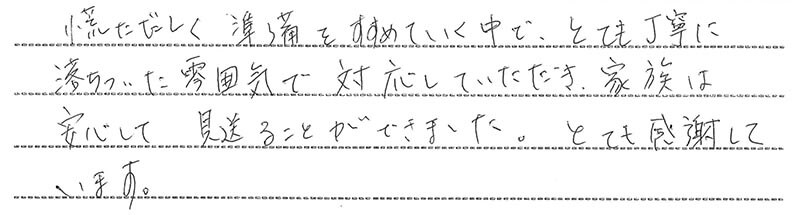 慌ただしく準備をすすめていく中で、とても丁寧に
落ちついた雰囲気で対応していただき、家族は
安心して見送ることができました。とても感謝して
います。